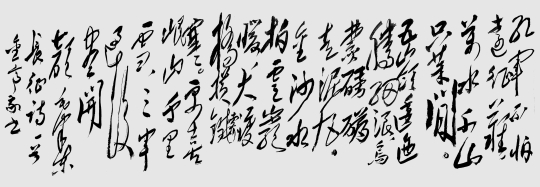 红军不怕
远征难
万水千山
只等闲。
五岭逶迤
腾细浪乌
蒙磅礴
走泥丸。
金沙水
拍云崖
暖大渡
桥横铁索
寒。更喜
岷山千里
雪三军
过后
尽开
颜 毛泽东
长征诗一首